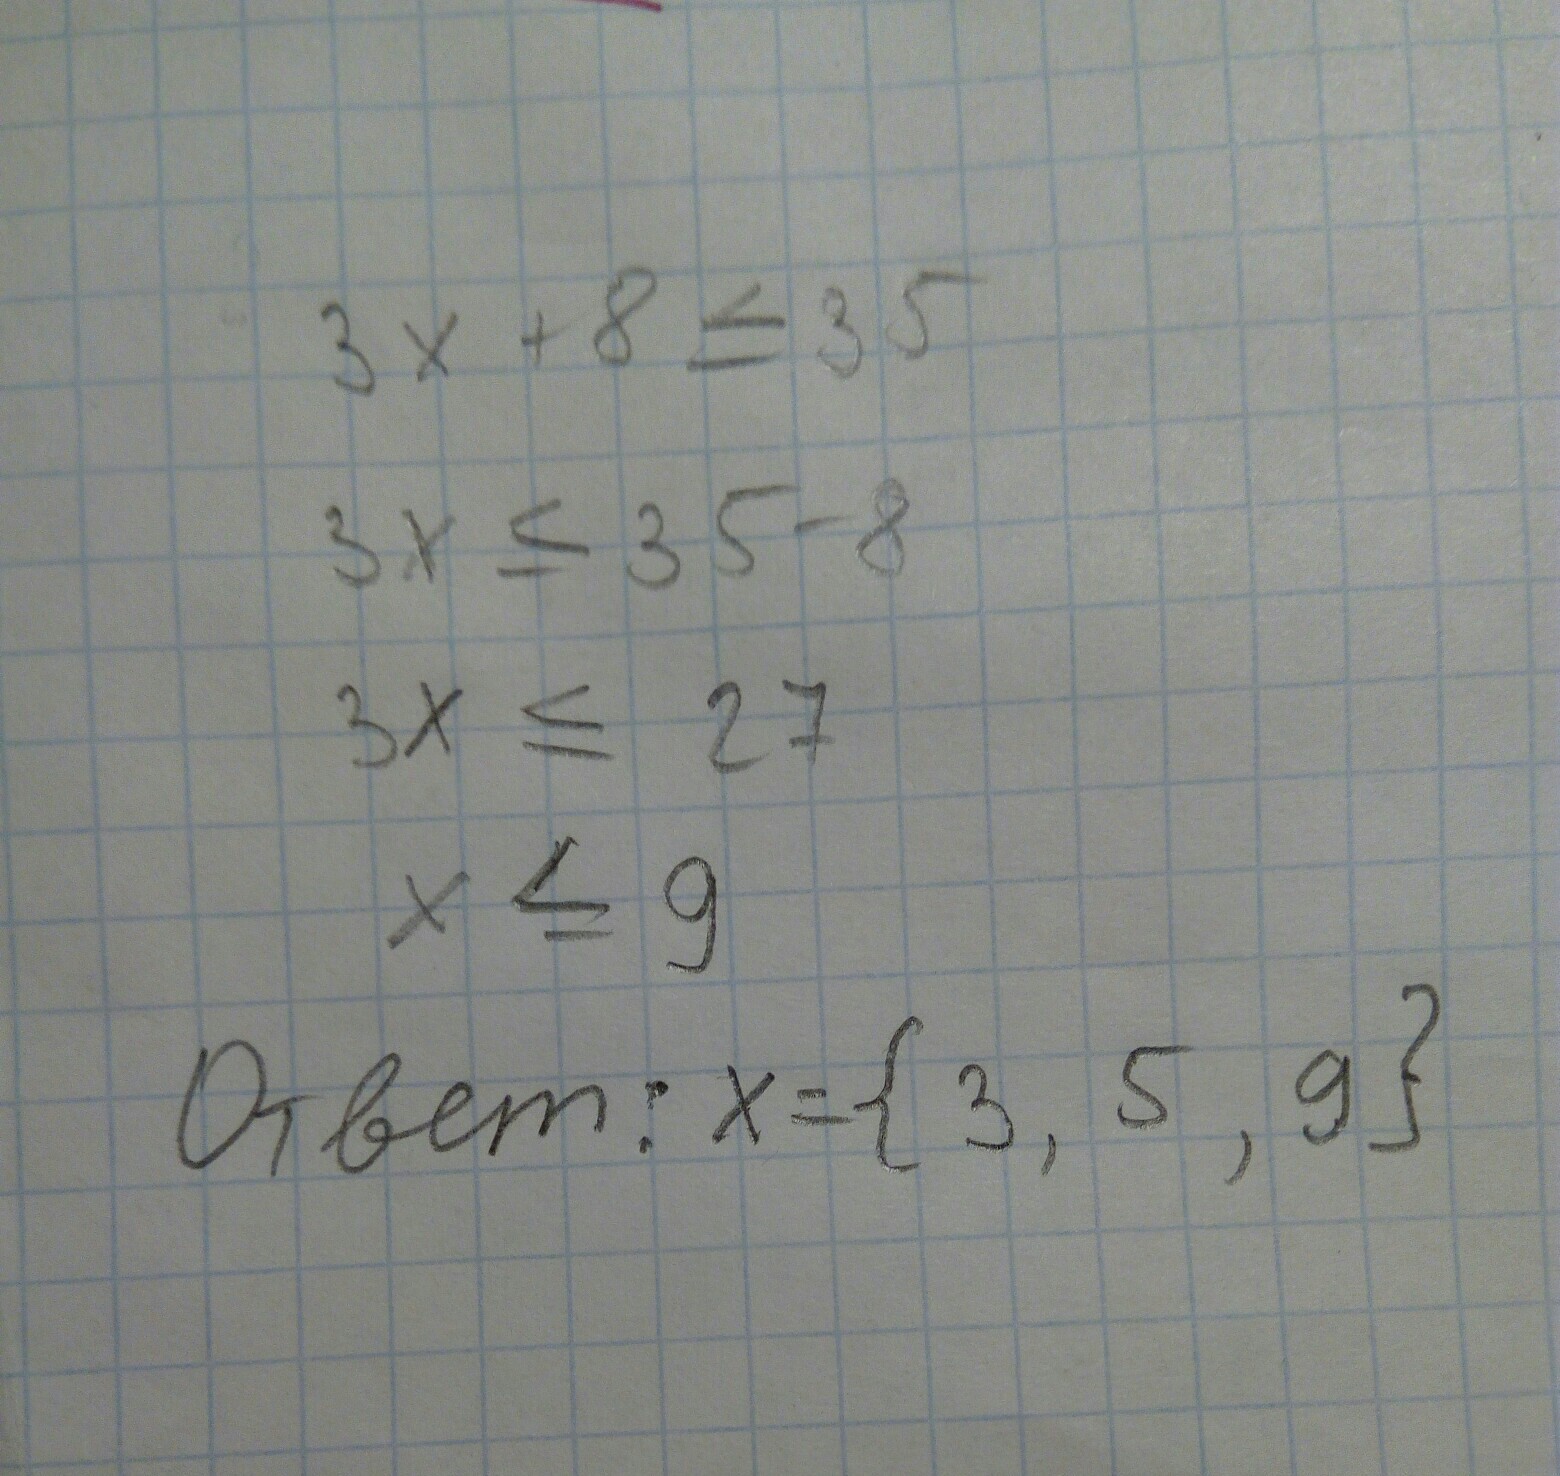 3x + 8 ≤ 35
3x ≤ 35 - 8
3x ≤ 27
x ≤ 9
Ответ: x = {3, 5, 9}